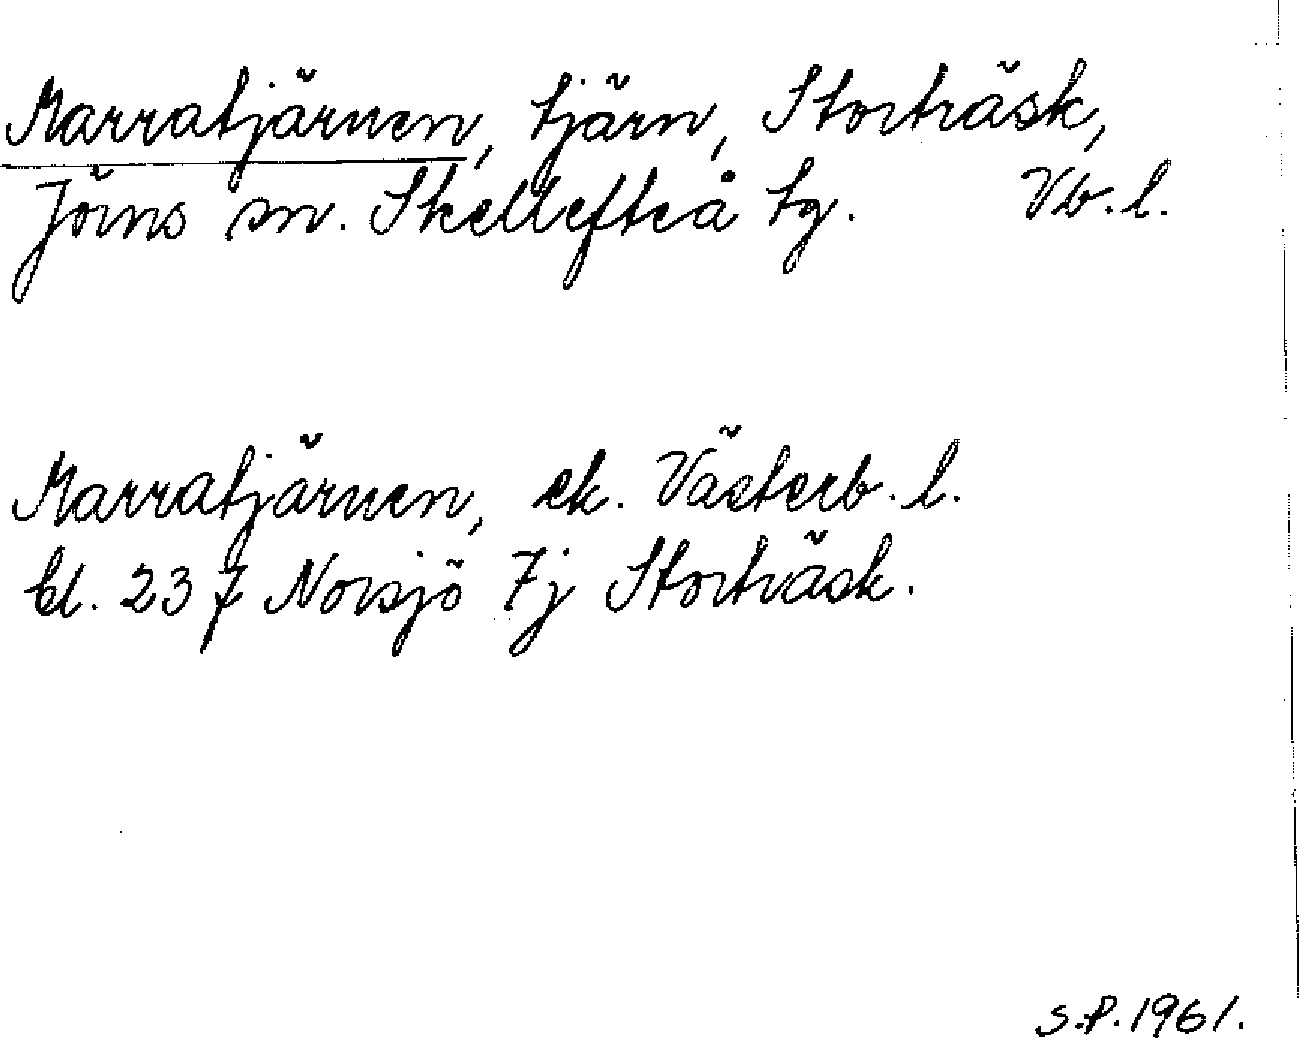 Marratjärnen, tjärn, Storträsk,
Jörns sn. Skellefteå tg. Vb. l.
Marratjärnen, ek. Västerb. l.
bl. 237 Norsjö 7j Storträsk.
S.P. 1961.